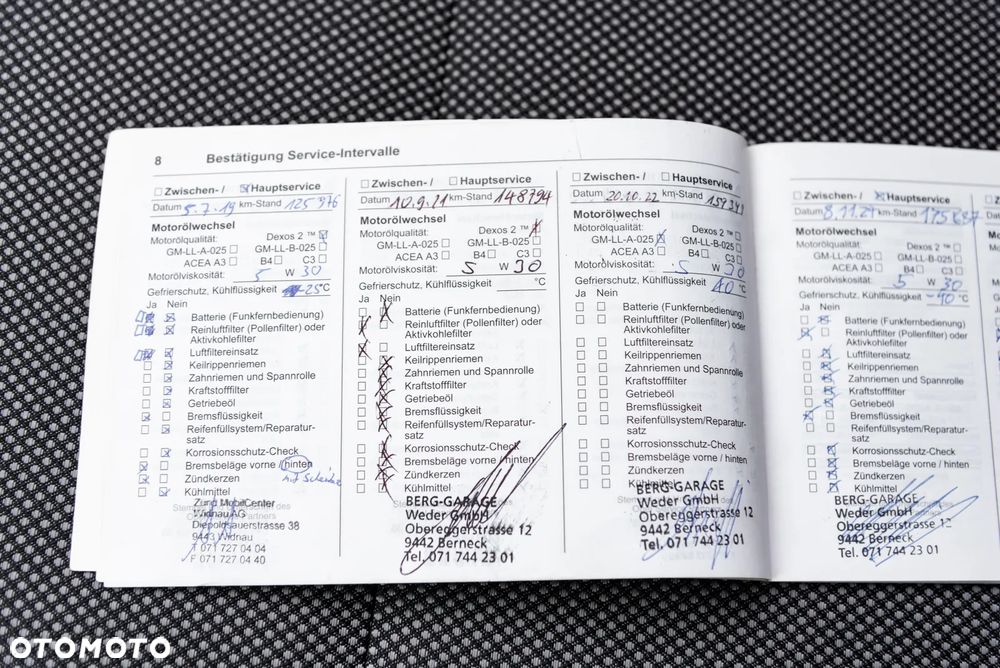 8 Bestätigung Service-Intervalle
Zwischen- / Hauptservice
Datum 5.7.19 km-Stand 125 976
Motorölwechsel
Motorölqualität: Dexos 2 ™
GM-LL-A-025 GM-LL-B-025
ACEA A3 B4 C3
Motorölviskosität: 5 W 30
Gefrierschutz, Kühlflüssigkeit -25°C
Ja Nein
Batterie (Funkfernbedienung)
Reinluftfilter (Pollenfilter) oder
Aktivkohlefilter
Luftfiltereinsatz
Keilrippenriemen
Zahnriemen und Spannrolle
Kraftstofffilter
Getriebeöl
Bremsflüssigkeit
Reifenfüllsystem/Reparatur-
satz
Korrosionsschutz-Check
Bremsbeläge vorne / hinten
Zündkerzen
Kühlmittel
Zünd MobilCenter
Widnau AG
Diepoldsauerstrasse 38
9443 Widnau
T 071 727 04 04
F 071 727 04 40
Zwischen- / Hauptservice
Datum 10.9.21 km-Stand 148794
Motorölwechsel
Motorölqualität: Dexos 2 ™
GM-LL-A-025 GM-LL-B-025
ACEA A3 B4 C3
Motorölviskosität: 5 W 30
Gefrierschutz, Kühlflüssigkeit °C
Ja Nein
Batterie (Funkfernbedienung)
Reinluftfilter (Pollenfilter) oder
Aktivkohlefilter
Luftfiltereinsatz
Keilrippenriemen
Zahnriemen und Spannrolle
Kraftstofffilter
Getriebeöl
Bremsflüssigkeit
Reifenfüllsystem/Reparatur-
satz
Korrosionsschutz-Check
Bremsbeläge vorne / hinten
Zündkerzen
Kühlmittel
BERG-GARAGE
Weder GmbH
Obereggerstrasse 12
9442 Berneck
Tel. 071 744 23 01
Zwischen- / Hauptservice
Datum 20.10.22 km-Stand
Motorölwechsel
Motorölqualität: Dexos 2 ™
GM-LL-A-025 GM-LL-B-025
ACEA A3 B4 C3
Motorölviskosität: 5 W 30
Gefrierschutz, Kühlflüssigkeit °C
Ja Nein
Batterie (Funkfernbedienung)
Reinluftfilter (Pollenfilter) oder
Aktivkohlefilter
Luftfiltereinsatz
Keilrippenriemen
Zahnriemen und Spannrolle
Kraftstofffilter
Getriebeöl
Bremsflüssigkeit
Reifenfüllsystem/Reparatur-
satz
Korrosionsschutz-Check
Bremsbeläge vorne / hinten
Zündkerzen
Kühlmittel
BERG-GARAGE
Weder GmbH
Obereggerstrasse 12
9442 Berneck
Tel. 071 744 23 01
Zwischen- / Hauptservice
Datum km-Stand
Motorölwechsel
Motorölqualität: Dexos 2 ™
GM-LL-A-025 GM-LL-B-025
ACEA A3 B4 C3
Motorölviskosität: 5 W 30
Gefrierschutz, Kühlflüssigkeit -40 °C
Ja Nein
Batterie (Funkfernbedienung)
Reinluftfilter (Pollenfilter) oder
Aktivkohlefilter
Luftfiltereinsatz
Keilrippenriemen
Zahnriemen und Spannrolle
Kraftstofffilter
Getriebeöl
Bremsflüssigkeit
Reifenfüllsystem/Reparatur-
satz
Korrosionsschutz-Check
Bremsbeläge vorne / hinten
Zündkerzen
Kühlmittel
BERG-GARAGE
Weder GmbH
Obereggerstrasse 12
9442 Berneck
Tel. 071 744 23 01
OTOMOTO